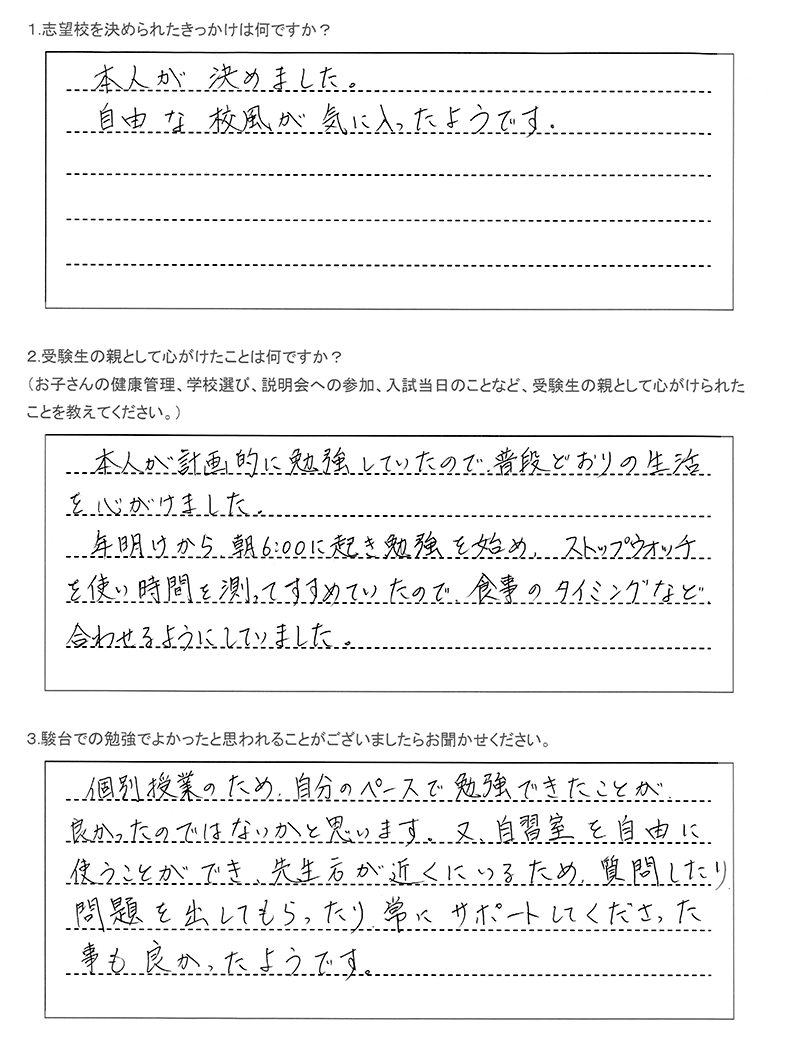 1.志望校を決められたきっかけは何ですか？
本人が 決めました。
自由 な 校風が 気に入ったようです.
2.受験生の親として心がけたことは何ですか？
（お子さんの健康管理、学校選び、説明会への参加、入試当日のことなど、受験生の親として心がけられた
ことを教えてください。）
本人が計画的に勉強していたので、普段どおりの生活
を心がけました.
年明けから 朝6:00に起き勉強を始め、ストップウォッチ
を使い時間を測ってすすめていたので、食事のタイミングなど、
合わせるようにしていました。
3.駿台での勉強でよかったと思われることがございましたらお聞かせください。
個別授業のため、自分のペースで勉強できたことが、
良かったのではないかと思います。又、自習室を自由に
使うことができ、先生方が近くにいるため、質問したり、
問題を出してもらったり、常に サポートしてくださった
事も良かったようです。